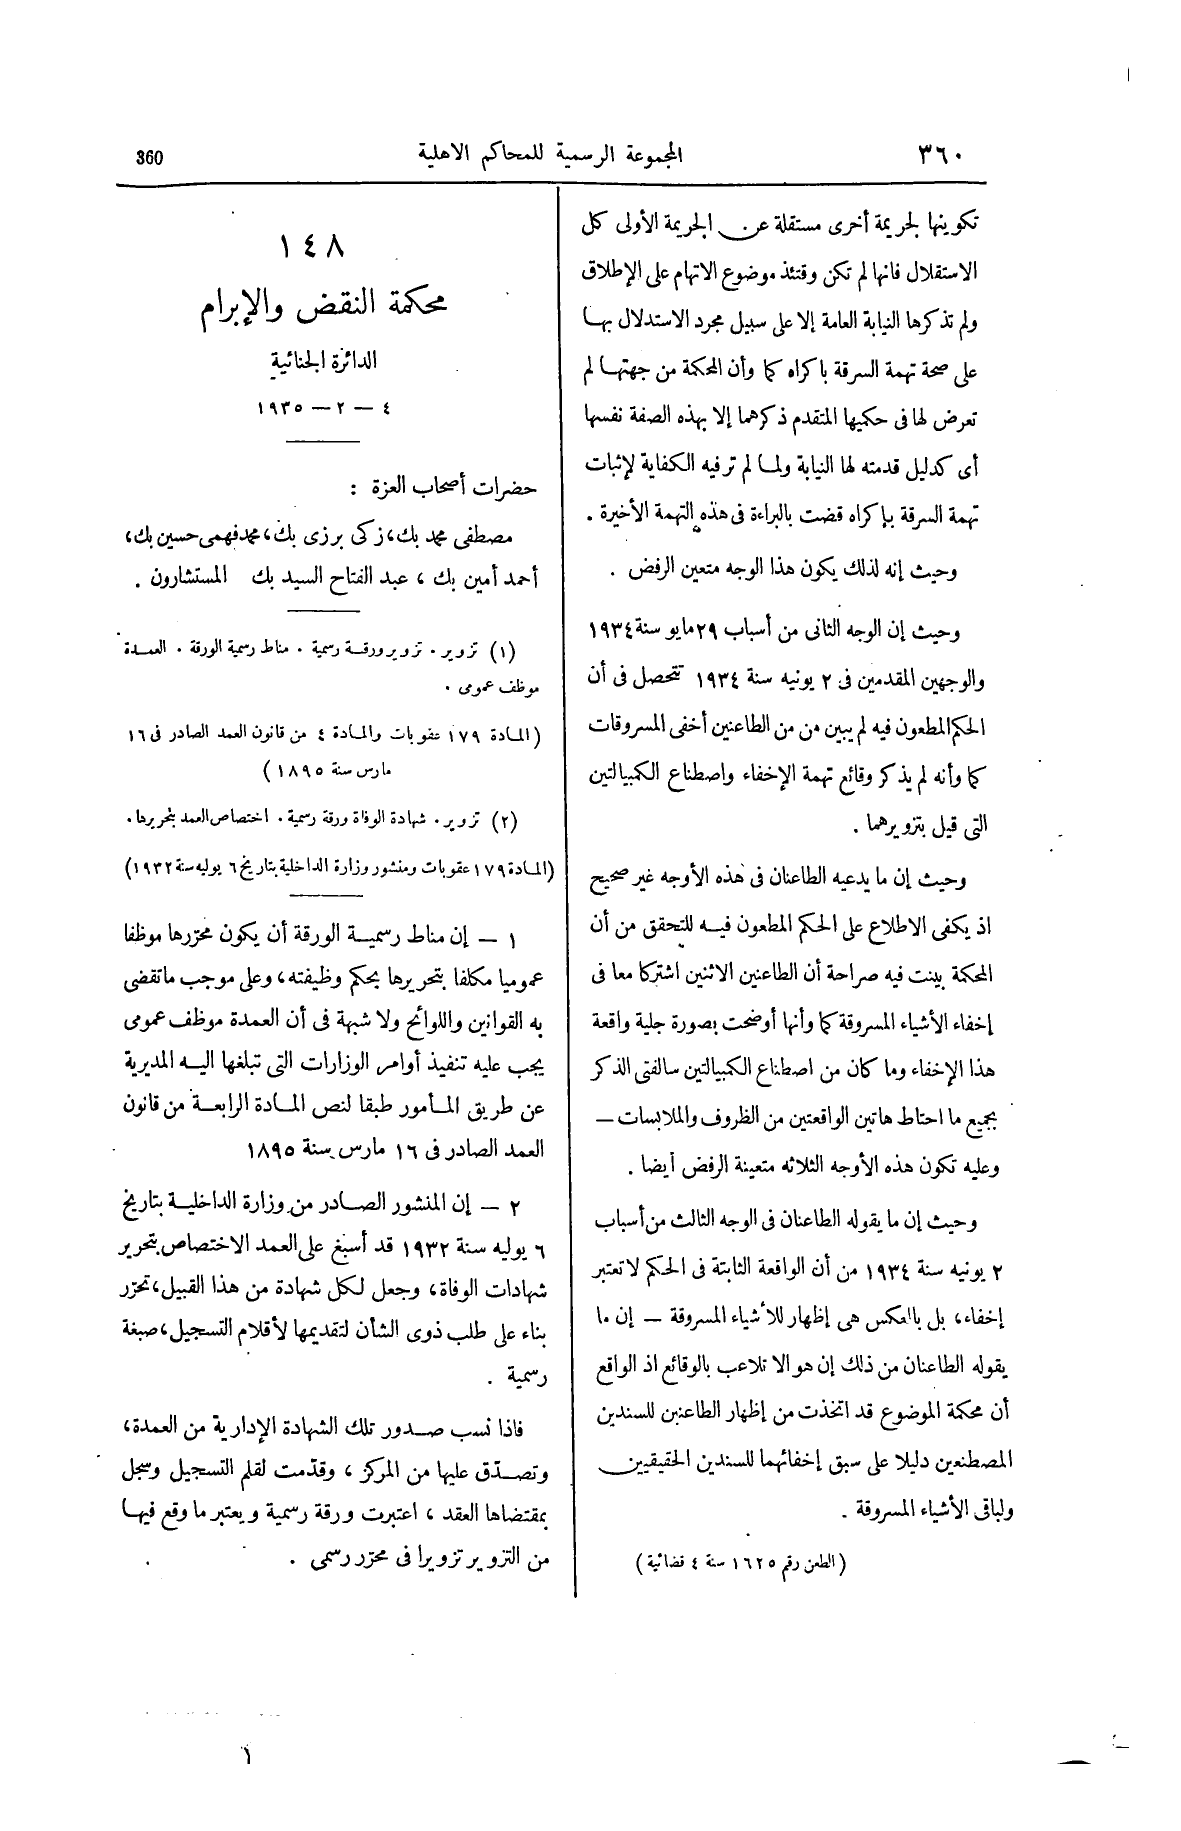 ٣٦٠
المجموعة الرسمية للمحاكم الاهلية
360
تكوينها لجريمة أخرى مستقلة عن الجريمة الأولى كل
الاستقلال فانها لم تكن وقتئذ موضوع الاتهام على الإطلاق
ولم تذكرها النيابة العامة إلا على سبيل مجرد الاستدلال بها
على صحة تهمة السرقة باكراه كما وأن المحكمة من جهتها لم
تعرض لها فى حكميها المتقدم ذكرهما إلا بهذه الصفة نفسها
أى كدليل قدمته لها النيابة ولما لم ترفيه الكفاية لإثبات
تهمة السرقة بإكراه قضت بالبراءة فى هذه التهمة الأخيرة .
وحيث إنه لذلك يكون هذا الوجه متعين الرفض .
وحيث إن الوجه الثانى من أسباب ٢٩ مايو سنة ١٩٣٤
والوجهين المقدمين فى ٢ يونيه سنة ١٩٣٤ تتحصل فى أن
الحكم المطعون فيه لم يبين من من الطاعنين أخفى المسروقات
كما وأنه لم يذكر وقائع تهمة الإخفاء واصطناع الكمبيالتين
التى قيل بتزويرهما .
وحيث إن ما يدعيه الطاعنان فى هذه الأوجه غير صحيح
اذ يكفى الاطلاع على الحكم المطعون فيه للتحقق من أن
المحكمة بينت فيه صراحة أن الطاعنين الاثنين اشتركا معا فى
إخفاء الأشياء المسروقة كما وأنها أوضحت بصورة جلية واقعة
هذا الإخفاء وما كان من اصطناع الكمبيالتين سالفتى الذكر
بجميع ما احتاط هاتين الواقعتين من الظروف والملابسات —
وعليه تكون هذه الأوجه الثلاثه متعينة الرفض أيضا .
وحيث إن ما يقوله الطاعنان فى الوجه الثالث من أسباب
٢ يونيه سنة ١٩٣٤ من أن الواقعة الثابتة فى الحكم لا تعتبر
إخفاء، بل بالعكس هى إظهار للأشياء المسروقة — إن ما
يقوله الطاعنان من ذلك إن هو الا تلاعب بالوقائع اذ الواقع
أن محكمة الموضوع قد اتخذت من إظهار الطاعنين للسندين
المصطنعين دليلا على سبق إخفائهما للسندين الحقيقيين
ولباقى الأشياء المسروقة .
(الطعن رقم ١٦٢٥ سنة ٤ قضائية)
١٤٨
محكمة النقض والإبرام
الدائرة الجنائية
٤ — ٢ — ١٩٣٥
حضرات أصحاب العزة :
مصطفى محمد بك، زكى برزى بك، محمد فهمى حسين بك،
أحمد أمين بك ، عبد الفتاح السيد بك المستشارون .
(١) تزوير . تزوير ورقة رسمية . مناط رسمية الورقة . العمدة
موظف عمومى .
(المادة ١٧٩ عقوبات والمادة ٤ من قانون العمد الصادر فى ١٦
مارس سنة ١٨٩٥)
(٢) تزوير . شهادة الوفاة ورقة رسمية . اختصاص العمد بتحريرها .
(المادة ١٧٩ عقوبات ومنشور وزارة الداخلية بتاريخ ٦ يوليه سنة ١٩٣٢)
١ — إن مناط رسمية الورقة أن يكون محرّرها موظفا
عموميا مكلفا بتحريرها بحكم وظيفته، وعلى موجب ما تقضى
به القوانين واللوائح ولا شبهة فى أن العمدة موظف عمومى
يجب عليه تنفيذ أوامر الوزارات التى تبلغها اليه المديرية
عن طريق المأمور طبقا لنص المادة الرابعة من قانون
العمد الصادر فى ١٦ مارس سنة ١٨٩٥
٢ — إن المنشور الصادر من وزارة الداخلية بتاريخ
٦ يوليه سنة ١٩٣٢ قد أسبغ على العمد الاختصاص بتحرير
شهادات الوفاة، وجعل لكل شهادة من هذا القبيل، تحرّر
بناء على طلب ذوى الشأن لتقديمها لأقلام التسجيل، صبغة
رسمية .
فاذا نسب صدور تلك الشهادة الإدارية من العمدة،
وتصدّق عليها من المركز ، وقدّمت لقلم التسجيل وسجل
بمقتضاها العقد ، اعتبرت ورقة رسمية ويعتبر ما وقع فيها
من التزوير تزويرا فى محرّر رسمى .
١